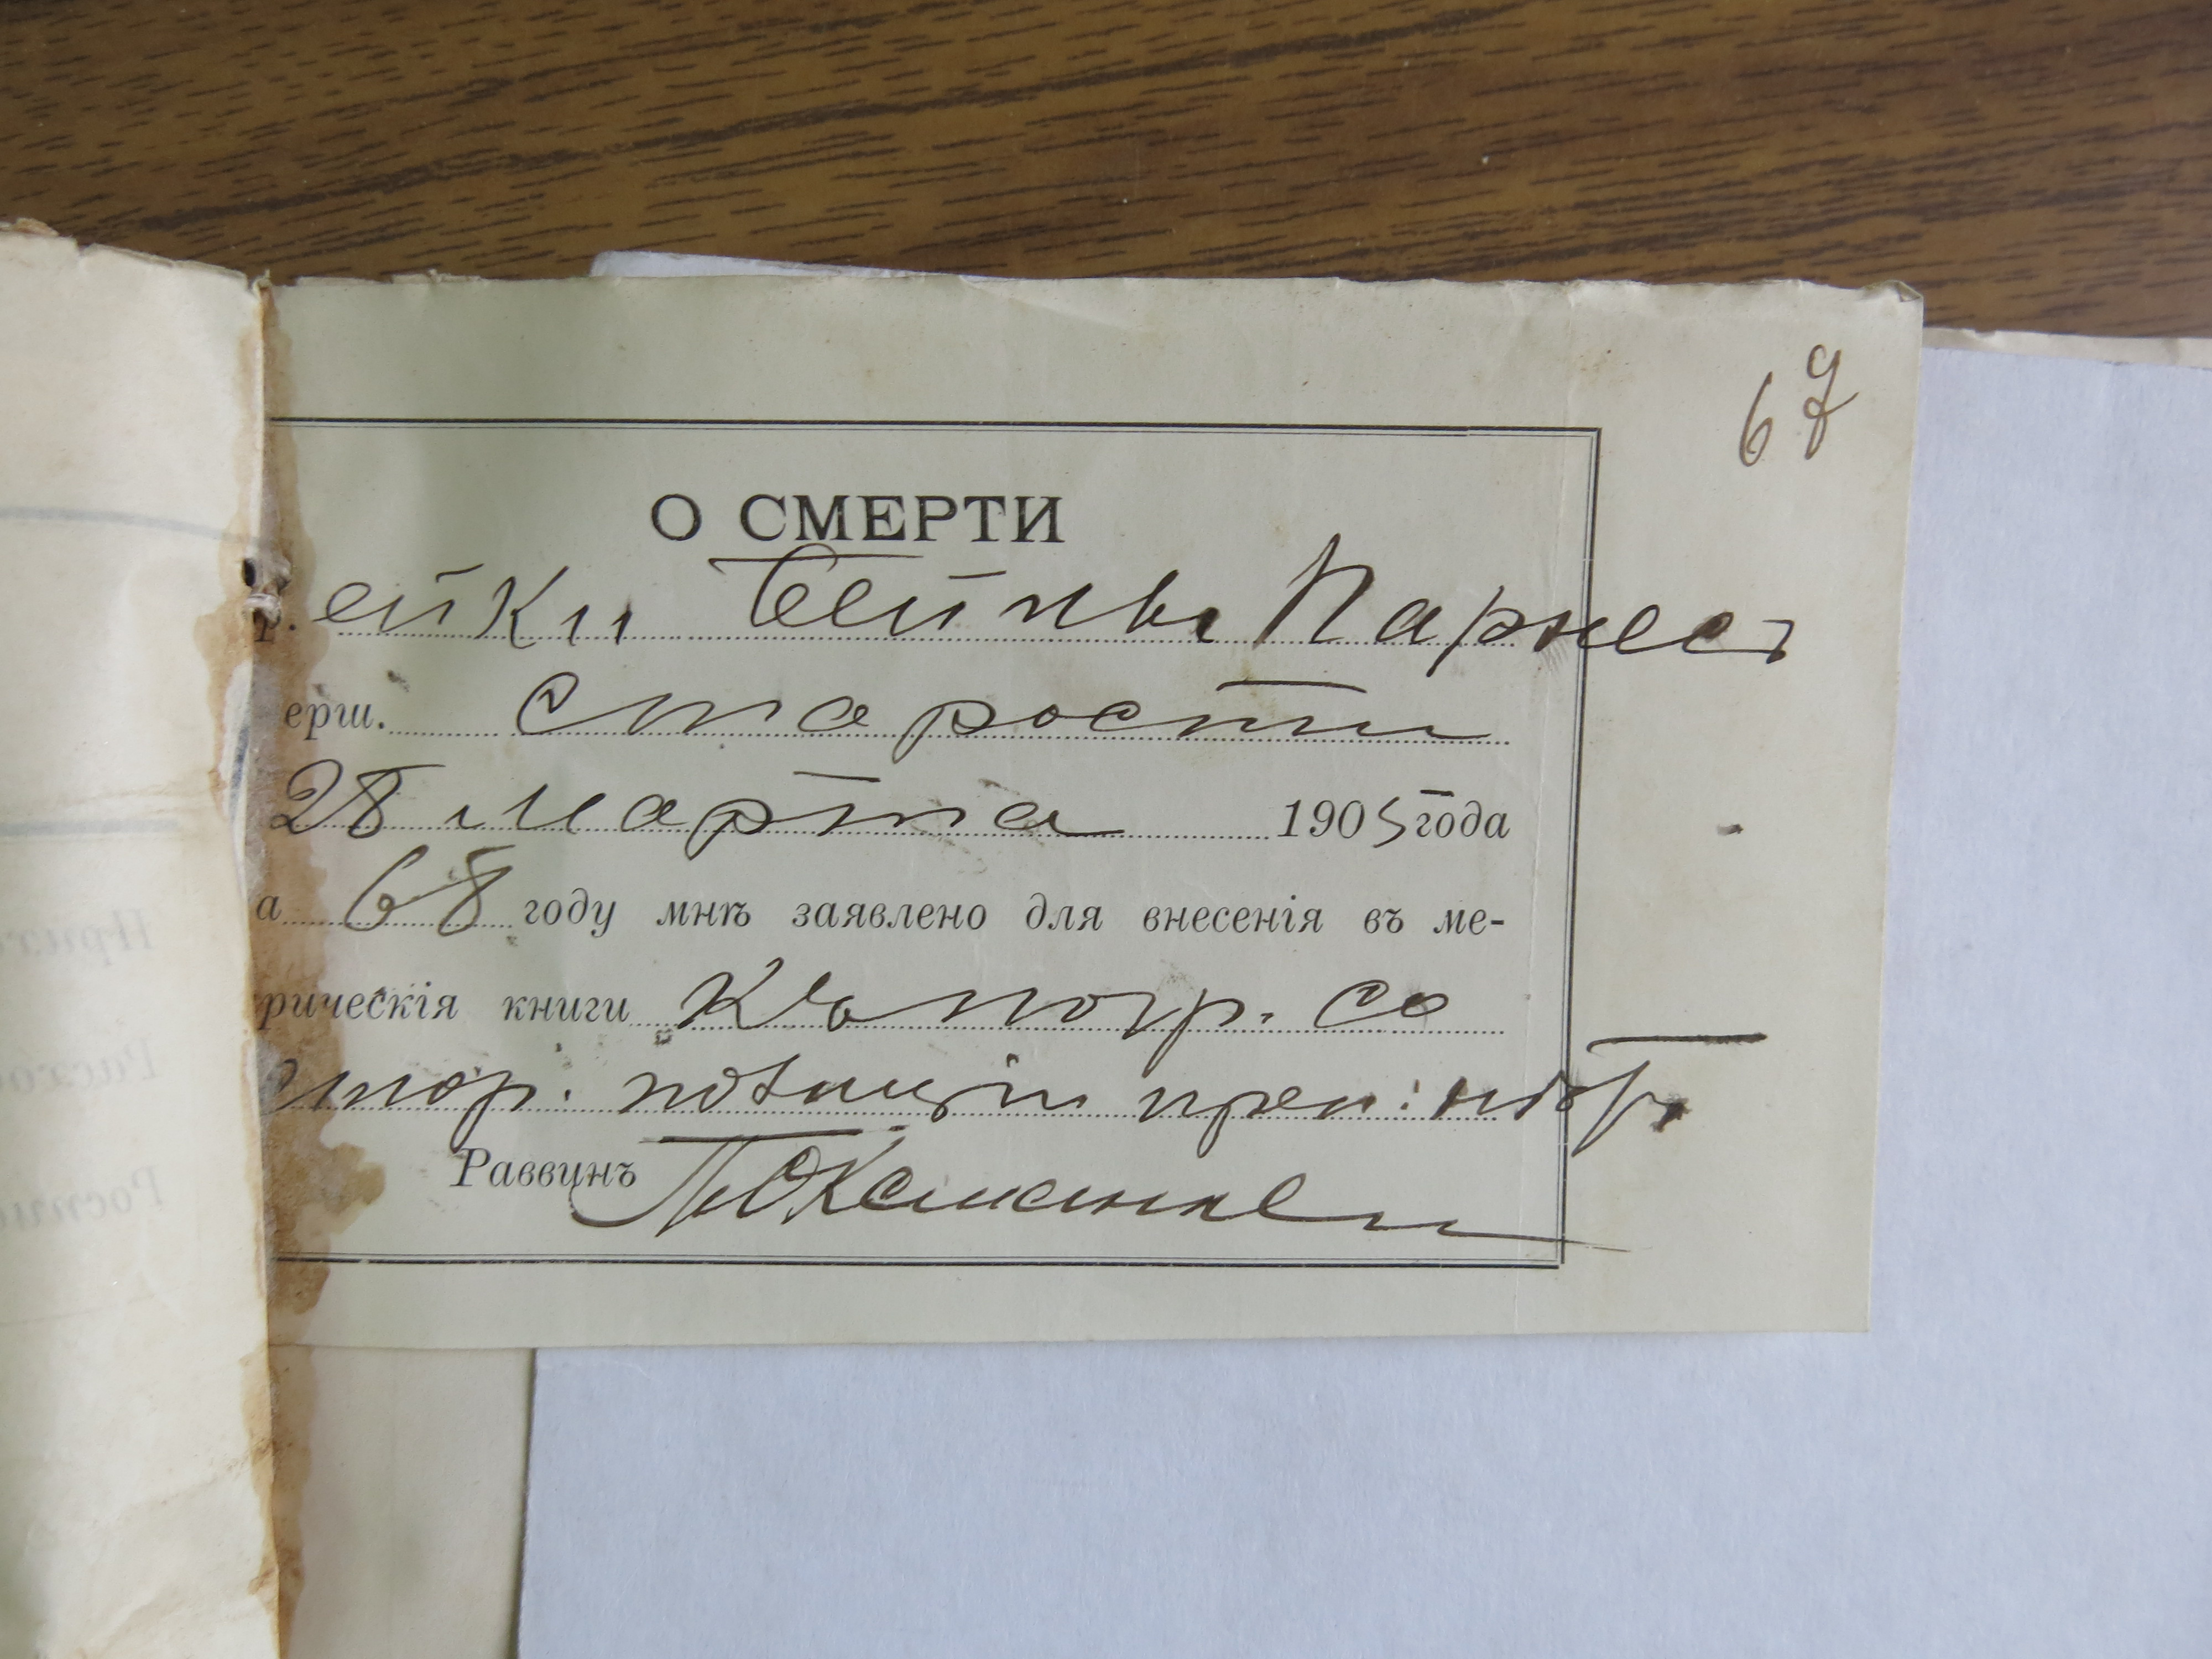 67
О СМЕРТИ
р. ейки Бейлы Парнесъ
ерш. старости
28 марта 1905 года
а 68 году мнѣ заявлено для внесенія въ ме-
рическія книги К погр. со
стор. полиціи преп: нѣтъ
Раввинъ